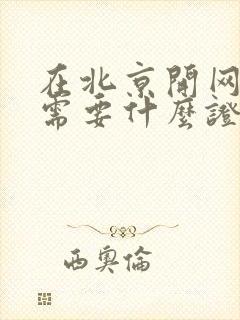 在北京開网
需要什麼證
西奧倫